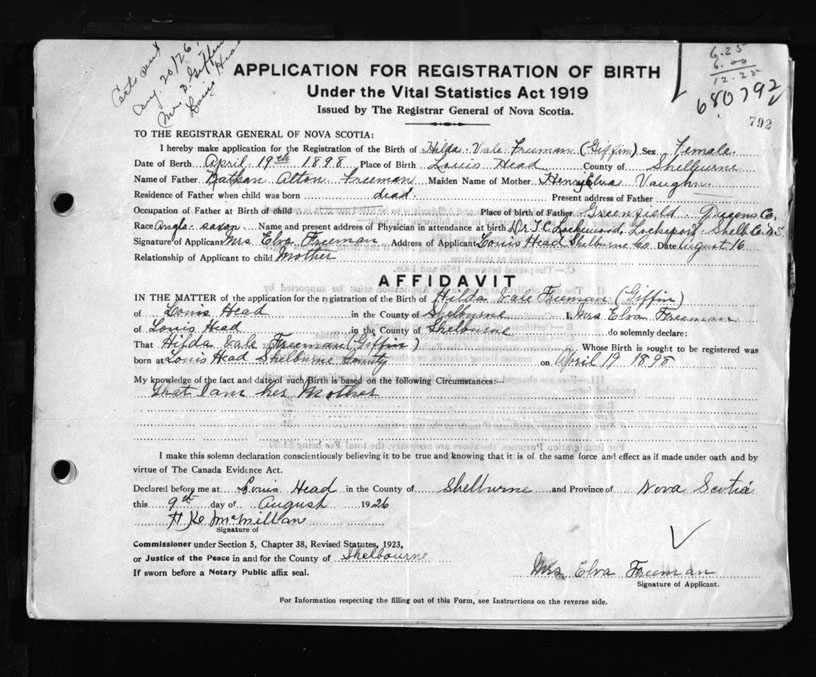 Certs sent
Aug. 20/26
Mrs. D. Giffin
Louis Head
6.25
6.00
12.25
680792
792
APPLICATION FOR REGISTRATION OF BIRTH
Under the Vital Statistics Act 1919
Issued by The Registrar General of Nova Scotia.
TO THE REGISTRAR GENERAL OF NOVA SCOTIA:
I hereby make application for the Registration of the Birth of Hilda Vale Freeman (Giffin) Sex Female
Date of Birth April 19th 1898 Place of Birth Louis Head County of Shelburne
Name of Father Alton Freeman Maiden Name of Mother Elva Vaughn
Residence of Father when child was born dead. Present address of Father
Occupation of Father at Birth of child Place of birth of Father Greenfield Queens Co.
Race Anglo-saxon Name and present address of Physician in attendance at birth Dr. T.C. Lockwood, Lockeport Shelb. Co. N.S
Signature of Applicant Mrs Elva Freeman Address of Applicant Louis Head Shelburne Co Date August 16
Relationship of Applicant to child Mother
AFFIDAVIT
IN THE MATTER of the application for the registration of the Birth of Hilda Vale Freeman (Giffin)
of Louis Head in the County of Shelburne I, Mrs Elva Freeman
of Louis Head in the County of Shelbourne do solemnly declare:
That Hilda Vale Freeman (Giffin) Whose Birth is sought to be registered was
born at Louis Head Shelburne County on April 19 1898
My knowledge of the fact and date of such Birth is based on the following Circumstances:—
that I am her Mother
I make this solemn declaration conscientiously believing it to be true and knowing that it is of the same force and effect as if made under oath and by
virtue of The Canada Evidence Act.
Declared before me at Louis Head in the County of Shelburne and Province of Nova Scotia
this 9th day of August 1926
H. Ke McMillan
Signature of
Commissioner under Section 5, Chapter 38, Revised Statutes, 1923,
or Justice of the Peace in and for the County of Shelbourne
If sworn before a Notary Public affix seal.
Mrs Elva Freeman
Signature of Applicant.
For Information respecting the filling out of this Form, see Instructions on the reverse side.